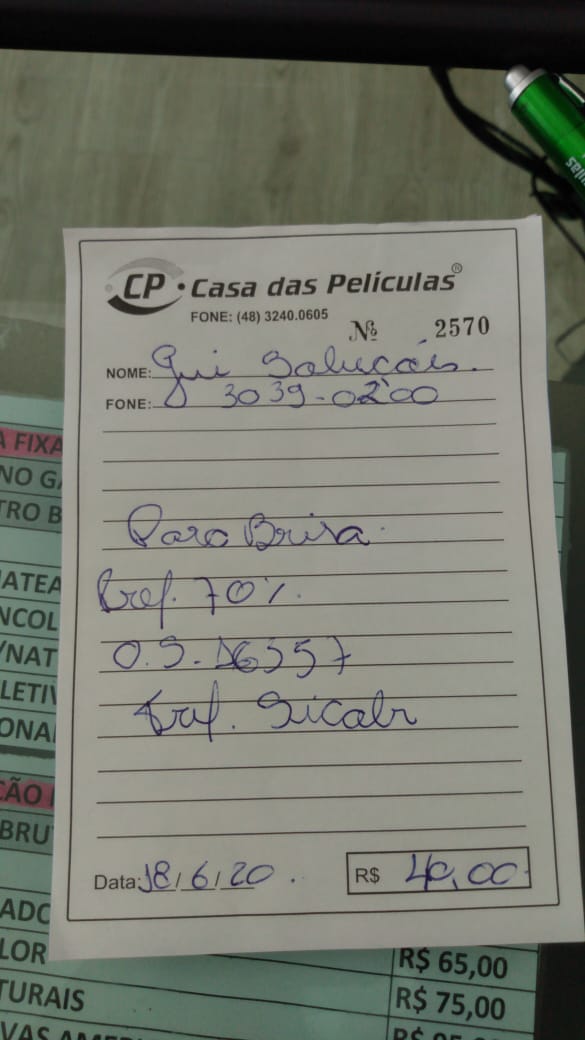 CP • Casa das Películas®
FONE: (48) 3240.0605
Nº 2570
NOME: Gui Soluções.
FONE: 3039-0200
Para Brisa.
Pref. 70%.
O.S. 16357
Data: 18/6/20.
R$ 40,00
A FIXA
NO GA
TRO B
MATEA
NCOL
/NAT
LETIV
ONAL
ÇÃO
BRU
ADO
LOR R$ 65,00
TURAIS R$ 75,00
VAS AMER